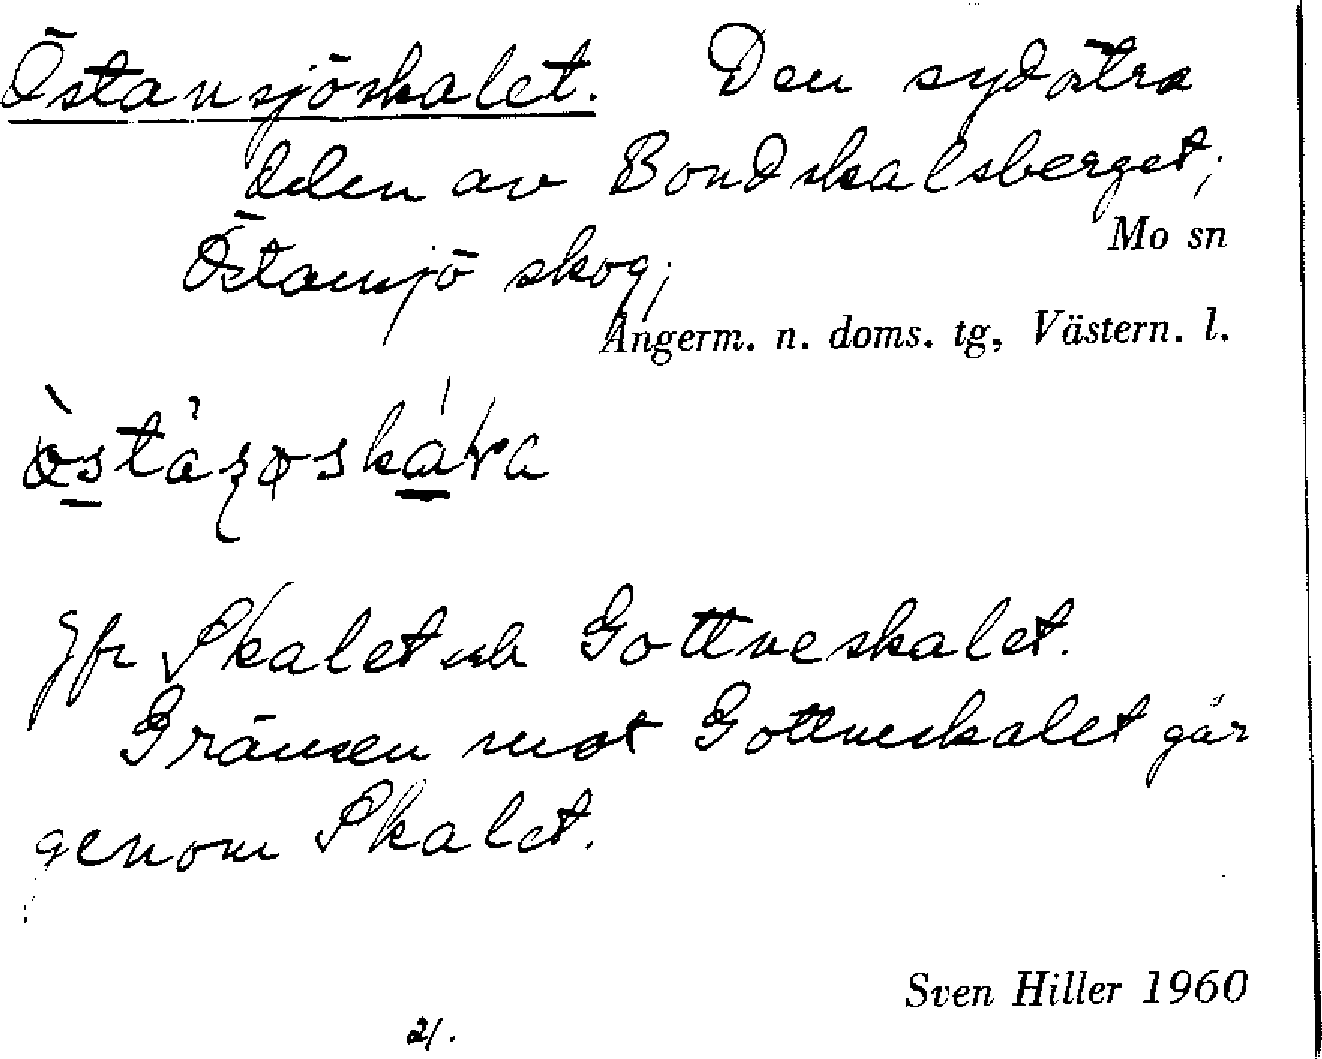 Östansjöskalet. Den sydöstra
delen av Bondskalsberget;
Mo sn
Östansjö skog;
Ångerm. n. doms. tg, Västern. l.
Jfr Skalet och Gottneskalet.
Gränsen mot Gottneskalet går
genom Skalet.
Sven Hiller 1960
21.